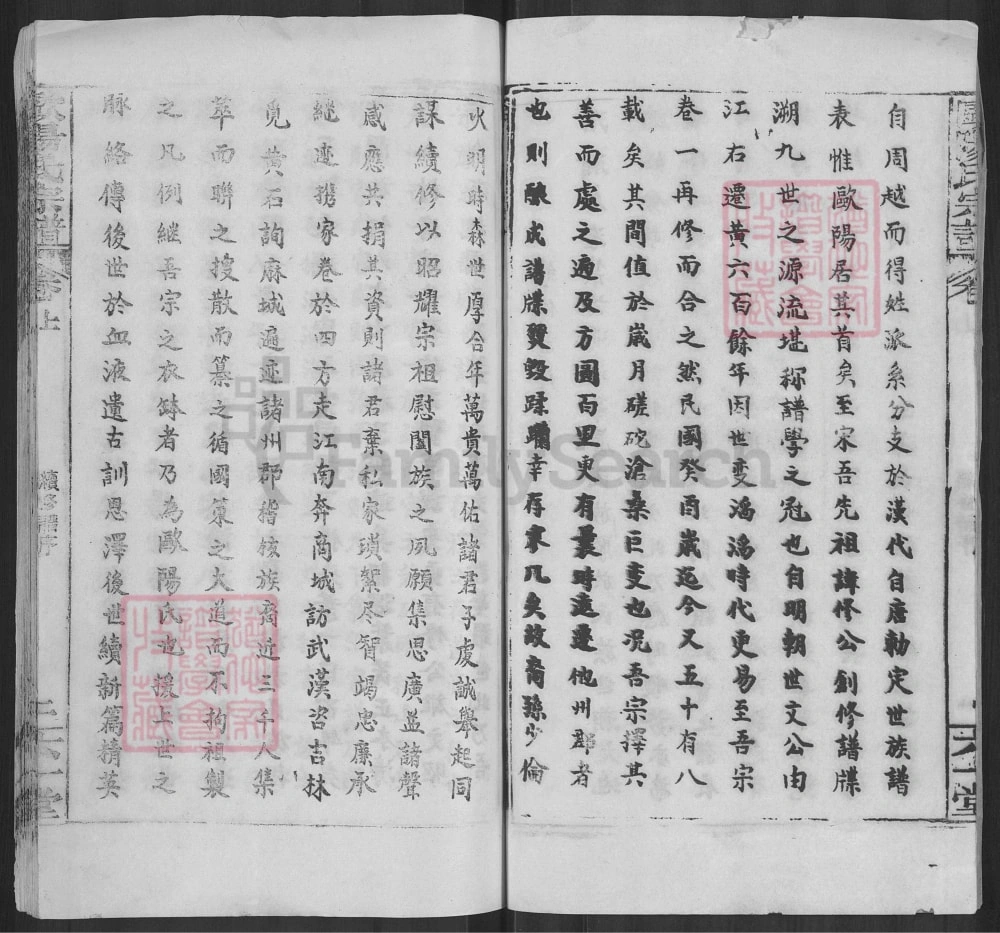 自周越而得姓派系分支於漢代自唐勅定世族譜
表惟歐陽居其首矣至宋吾先祖諱修公創修譜牒
溯九世之源流堪称譜學之冠也自明朝世文公由
江右遷黃六百餘年因世变滄滄時代更易至吾宗
卷一再修而合之然民國癸酉歲迄今又五十有八
載矣其間值於歲月磋砣滄桑巨变也况吾宗擇其
善而處之遍及方圓百里更有曩時遠遷他州郡者
也則融成譜牒毀蹂躪幸存寡几矣故裔孫少倫
火明時森世厚合年萬貴萬佑諸君子虔誠舉起同
謀續修以昭耀宗祖慰闔族之夙願集思廣益諸聲
感應共捐其資則諸君棄私家瑣絮尽智竭忠廉承
継迹携家卷於四方走江南奔商城訪武漢咨吉林
覓黃石詢麻城遍迹諸州郡稽核族裔近三千人集
萃而聯之搜散而纂之循國策之大道而不拘祖製
之凡例継吾宗之衣缽者乃為歐陽氏也援上世之
脉絡傳後世於血液遺古訓恩澤後世續新篇精英
歐陽氏宗譜
卷之上
續修譜序
二
六一堂
FamilySearch